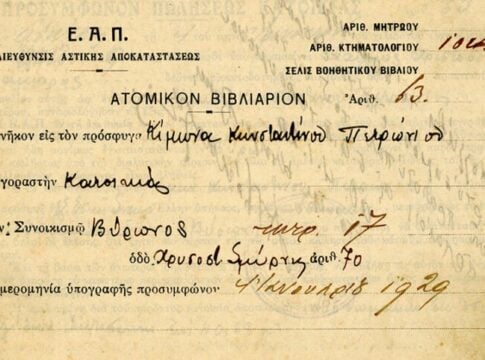 Ε. Α. Π.
ΔΙΕΥΘΥΝΣΙΣ ΑΣΤΙΚΗΣ ΑΠΟΚΑΤΑΣΤΑΣΕΩΣ
ΑΡΙΘ. ΜΗΤΡΩΟΥ
ΑΡΙΘ. ΚΤΗΜΑΤΟΛΟΓΙΟΥ
ΣΕΛΙΣ ΒΟΗΘΗΤΙΚΟΥ ΒΙΒΛΙΟΥ
ΑΤΟΜΙΚΟΝ ΒΙΒΛΙΑΡΙΟΝ Ἀριθ. 63.
νῆκον εἰς τὸν πρόσφυγα Κίμωνα Κωνσταντίνου
γοραστὴν Κατοικίας
Συνοικισμῷ Βύρωνος τετρ. 17
ὁδὸς Χρυσοστ. Σμύρνης ἀριθ. 70
μερομηνία ὑπογραφῆς προσυμφώνου 1929